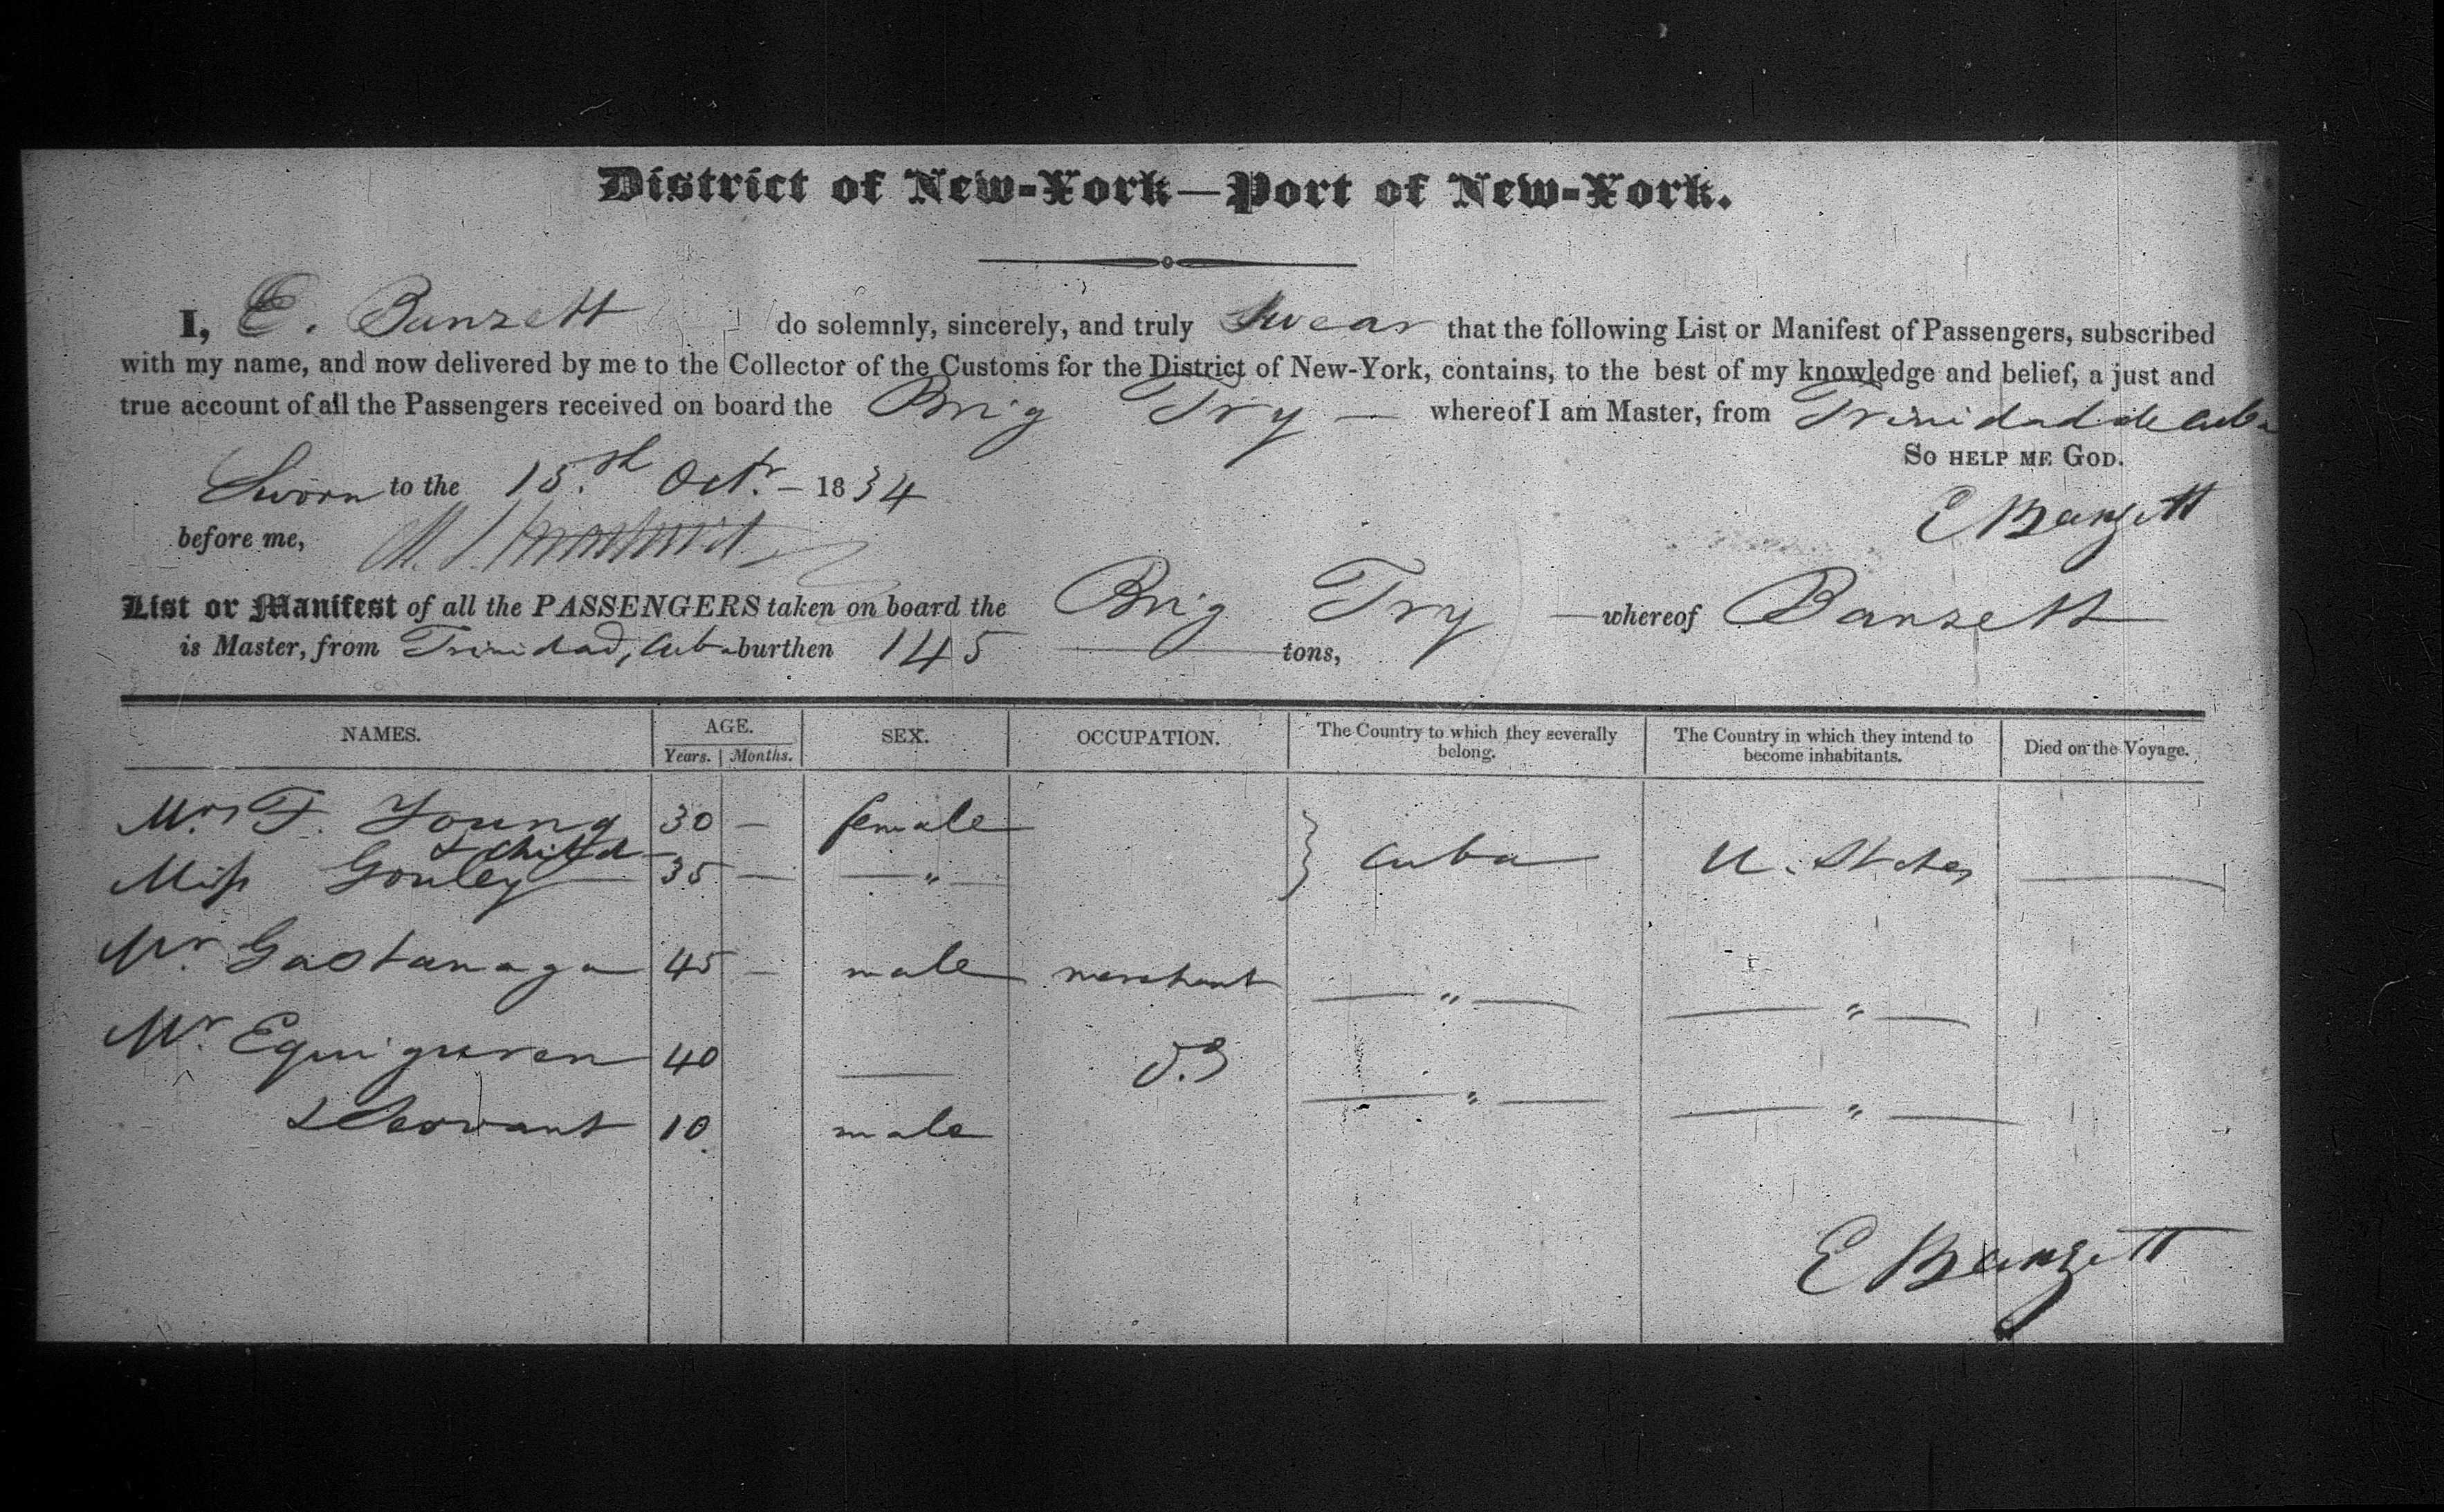 District of New-York—Port of New-York.
I, E. Banzett do solemnly, sincerely, and truly Swear that the following List or Manifest of Passengers, subscribed
with my name, and now delivered by me to the Collector of the Customs for the District of New-York, contains, to the best of my knowledge and belief, a just and
true account of all the Passengers received on board the Brig Try — whereof I am Master, from Trinidad de Cuba
So help me God.
Sworn to the 15.th Oct.r – 1834
E Banzett
before me,
List or Manifest of all the PASSENGERS taken on board the Brig Try — whereof Banzett
is Master, from Trinidad, Cuba burthen 145 tons,
NAMES. AGE. SEX. OCCUPATION. The Country to which they severally belong. The Country in which they intend to become inhabitants. Died on the Voyage.
Years. Months.
Mrs F. Young 30 — female
& Child
Miss Gonley 35 — — " — } Cuba U. States —
Mr. Gastanaga 45 — male merchant — " — — " —
Mr. Equiguren 40 — do — " — — " —
& Servant 10 male
E Banzett